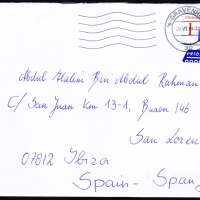 'S GRAVENH
1
PRIO
Abdul Halim Bin Abdul Rahman
C/ San Juan km 13-1, Buzon 146
San Loren
07812 Ibiza
Spain - Span